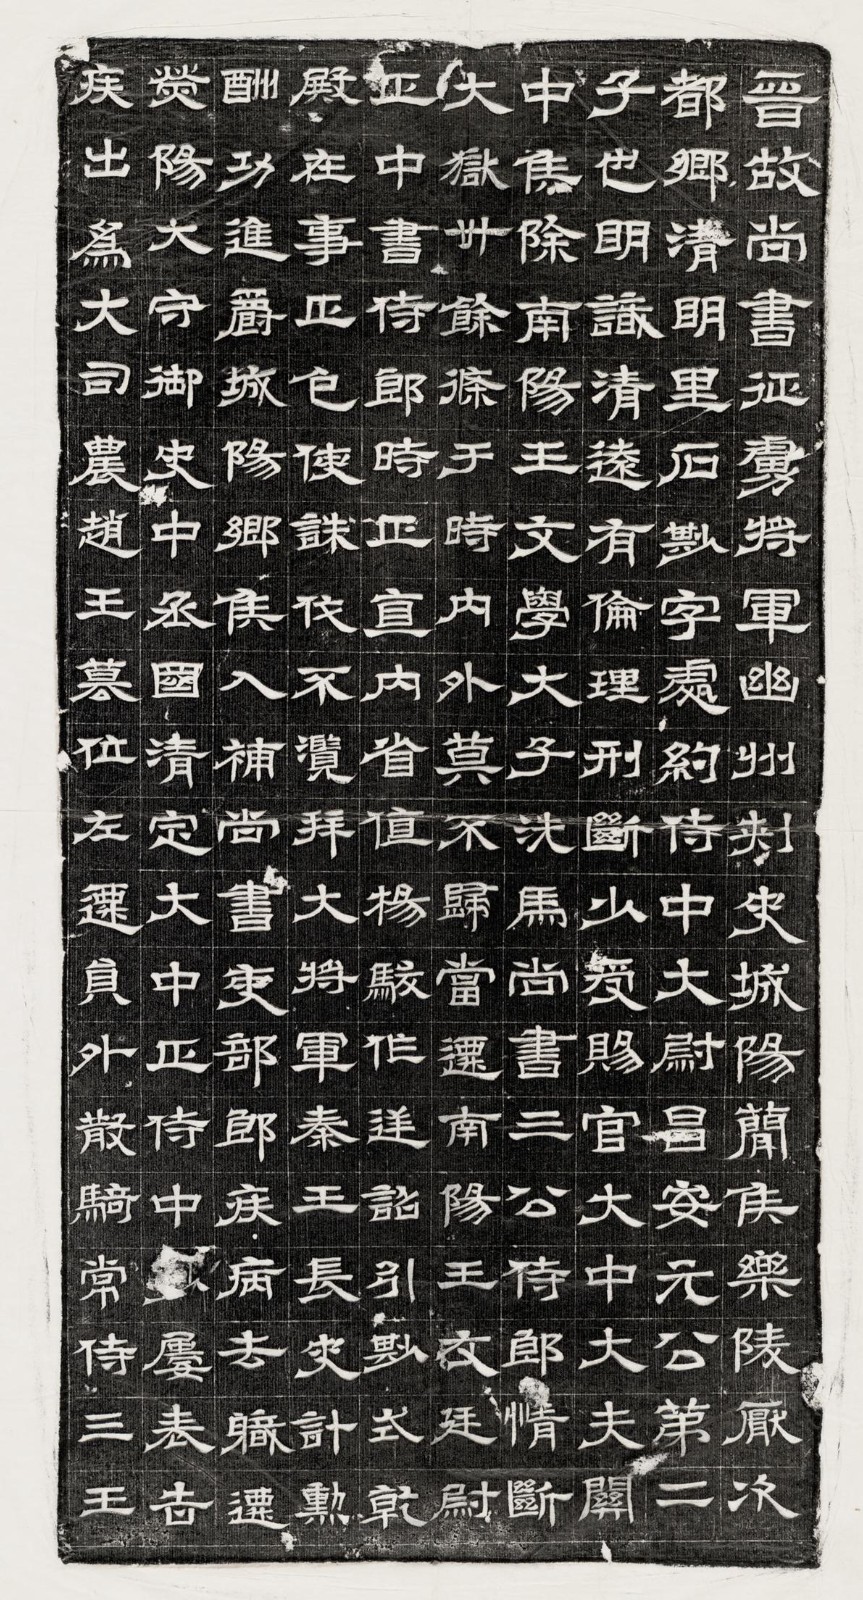 晉故尚書征虜將軍幽州刺史城陽簡侯樂陵厭次
都鄉清明里石尠字處約侍中大尉昌安元公第二
子也明識清遠有倫理刑斷少受賜官大中大夫關
中侯除南陽王文學大子洗馬尚書三公侍郎情斷
大獄卅餘條于時內外莫不歸當遷南陽王友廷尉
正中書侍郎時正直內省值楊駿作逆詔引尠式乾
殿在事正色使誅伐不濫拜大將軍秦王長史計勳
酬功進爵城陽鄉侯入補尚書吏部郎疾病去職遷
滎陽大守御史中丞國清定大中正侍中屢表告
疾出為大司農趙王篡位左遷員外散騎常侍三王